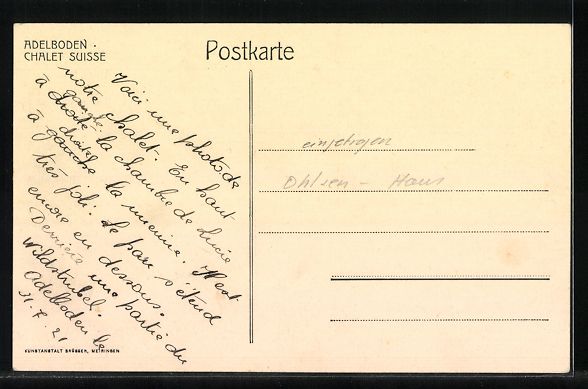 ADELBODEN.
CHALET SUISSE
Postkarte
Voici une photo de
notre chalet. En haut
à droite la chambre de Lucie
à gauche la mienne. C'est
très joli. Le parc s'étend
encore en dessous.
Derrière une partie du
Wildstrubel.
Adelboden le
31-7-21
eingetragen
Ohlsen - Haus
KUNSTANSTALT BRÜGGER, MEIRINGEN